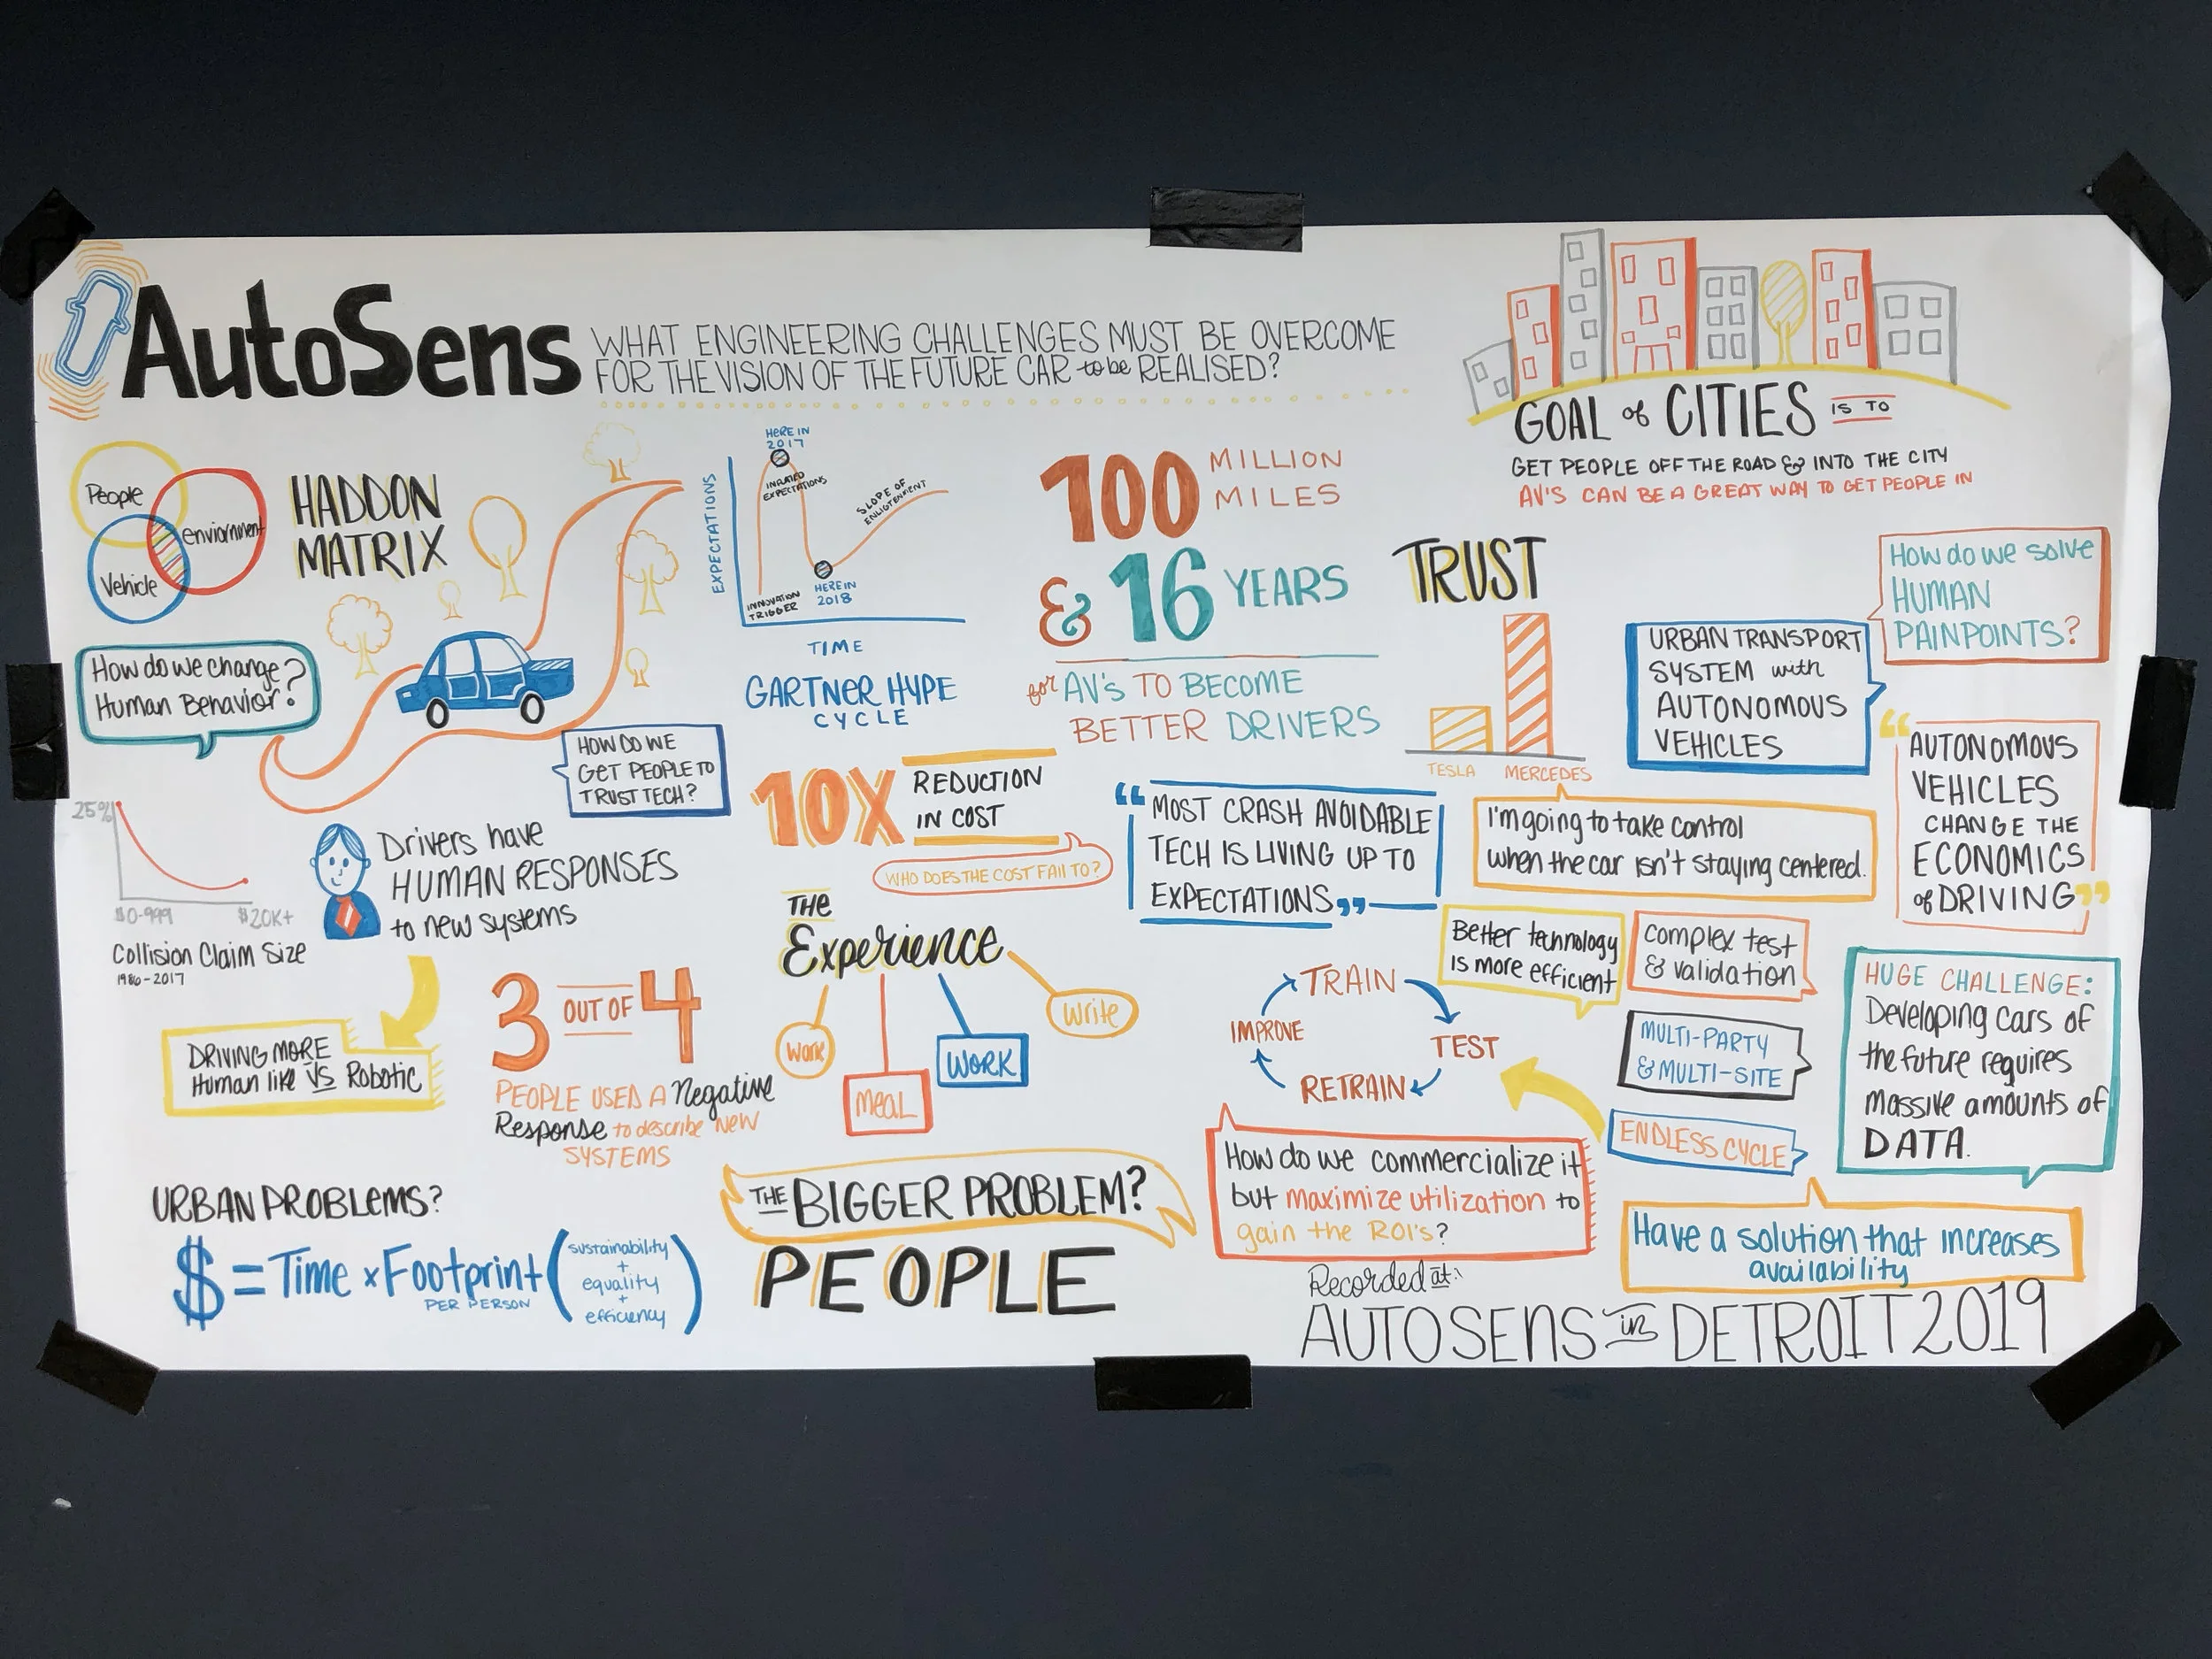 AutoSens
WHAT ENGINEERING CHALLENGES MUST BE OVERCOME
FOR THE VISION OF THE FUTURE CAR to be REALISED?
GOAL of CITIES IS TO
GET PEOPLE OFF THE ROAD & INTO THE CITY
AV'S CAN BE A GREAT WAY TO GET PEOPLE IN
People
enviornment
Vehicle
HADDON
MATRIX
How do we change
Human Behavior?
HOW DO WE
GET PEOPLE TO
TRUST TECH?
EXPECTATIONS
HERE IN
2017
INFLATED
EXPECTATIONS
SLOPE OF
ENLIGTENMENT
INNOVATION
TRIGGER
HERE IN
2018
TIME
GARTNER HYPE
CYCLE
100 MILLION
MILES
& 16 YEARS
for AV's TO BECOME
BETTER DRIVERS
TRUST
TESLA
MERCEDES
I'm going to take control
when the car isn't staying centered.
URBAN TRANSPORT
SYSTEM with
AUTONOMOUS
VEHICLES
How do we solve
HUMAN
PAINPOINTS?
“AUTONOMOUS
VEHICLES
CHANGE THE
ECONOMICS
of DRIVING”
25%
$0-999
$20K+
Collision Claim Size
1986-2017
Drivers have
HUMAN RESPONSES
to new systems
DRIVING MORE
Human like VS Robotic
3 OUT OF 4
PEOPLE USED A Negative
Response to describe NEW
SYSTEMS
10X REDUCTION
IN COST
WHO DOES THE COST FALL TO?
“MOST CRASH AVOIDABLE
TECH IS LIVING UP TO
EXPECTATIONS”
THE
Experience
Work
MEAL
WORK
Write
TRAIN
TEST
RETRAIN
IMPROVE
Better technology
is more efficient
Complex test
& validation
MULTI-PARTY
& MULTI-SITE
ENDLESS CYCLE
HUGE CHALLENGE:
Developing cars of
the future requires
massive amounts of
DATA.
Have a solution that increases
availability
How do we commercialize it
but maximize utilization to
gain the ROI's?
URBAN PROBLEMS?
$ = Time x Footprint (sustainability
+
equality
+
efficiency)
PER PERSON
THE BIGGER PROBLEM?
PEOPLE
Recorded at:
AUTOSENS in DETROIT 2019